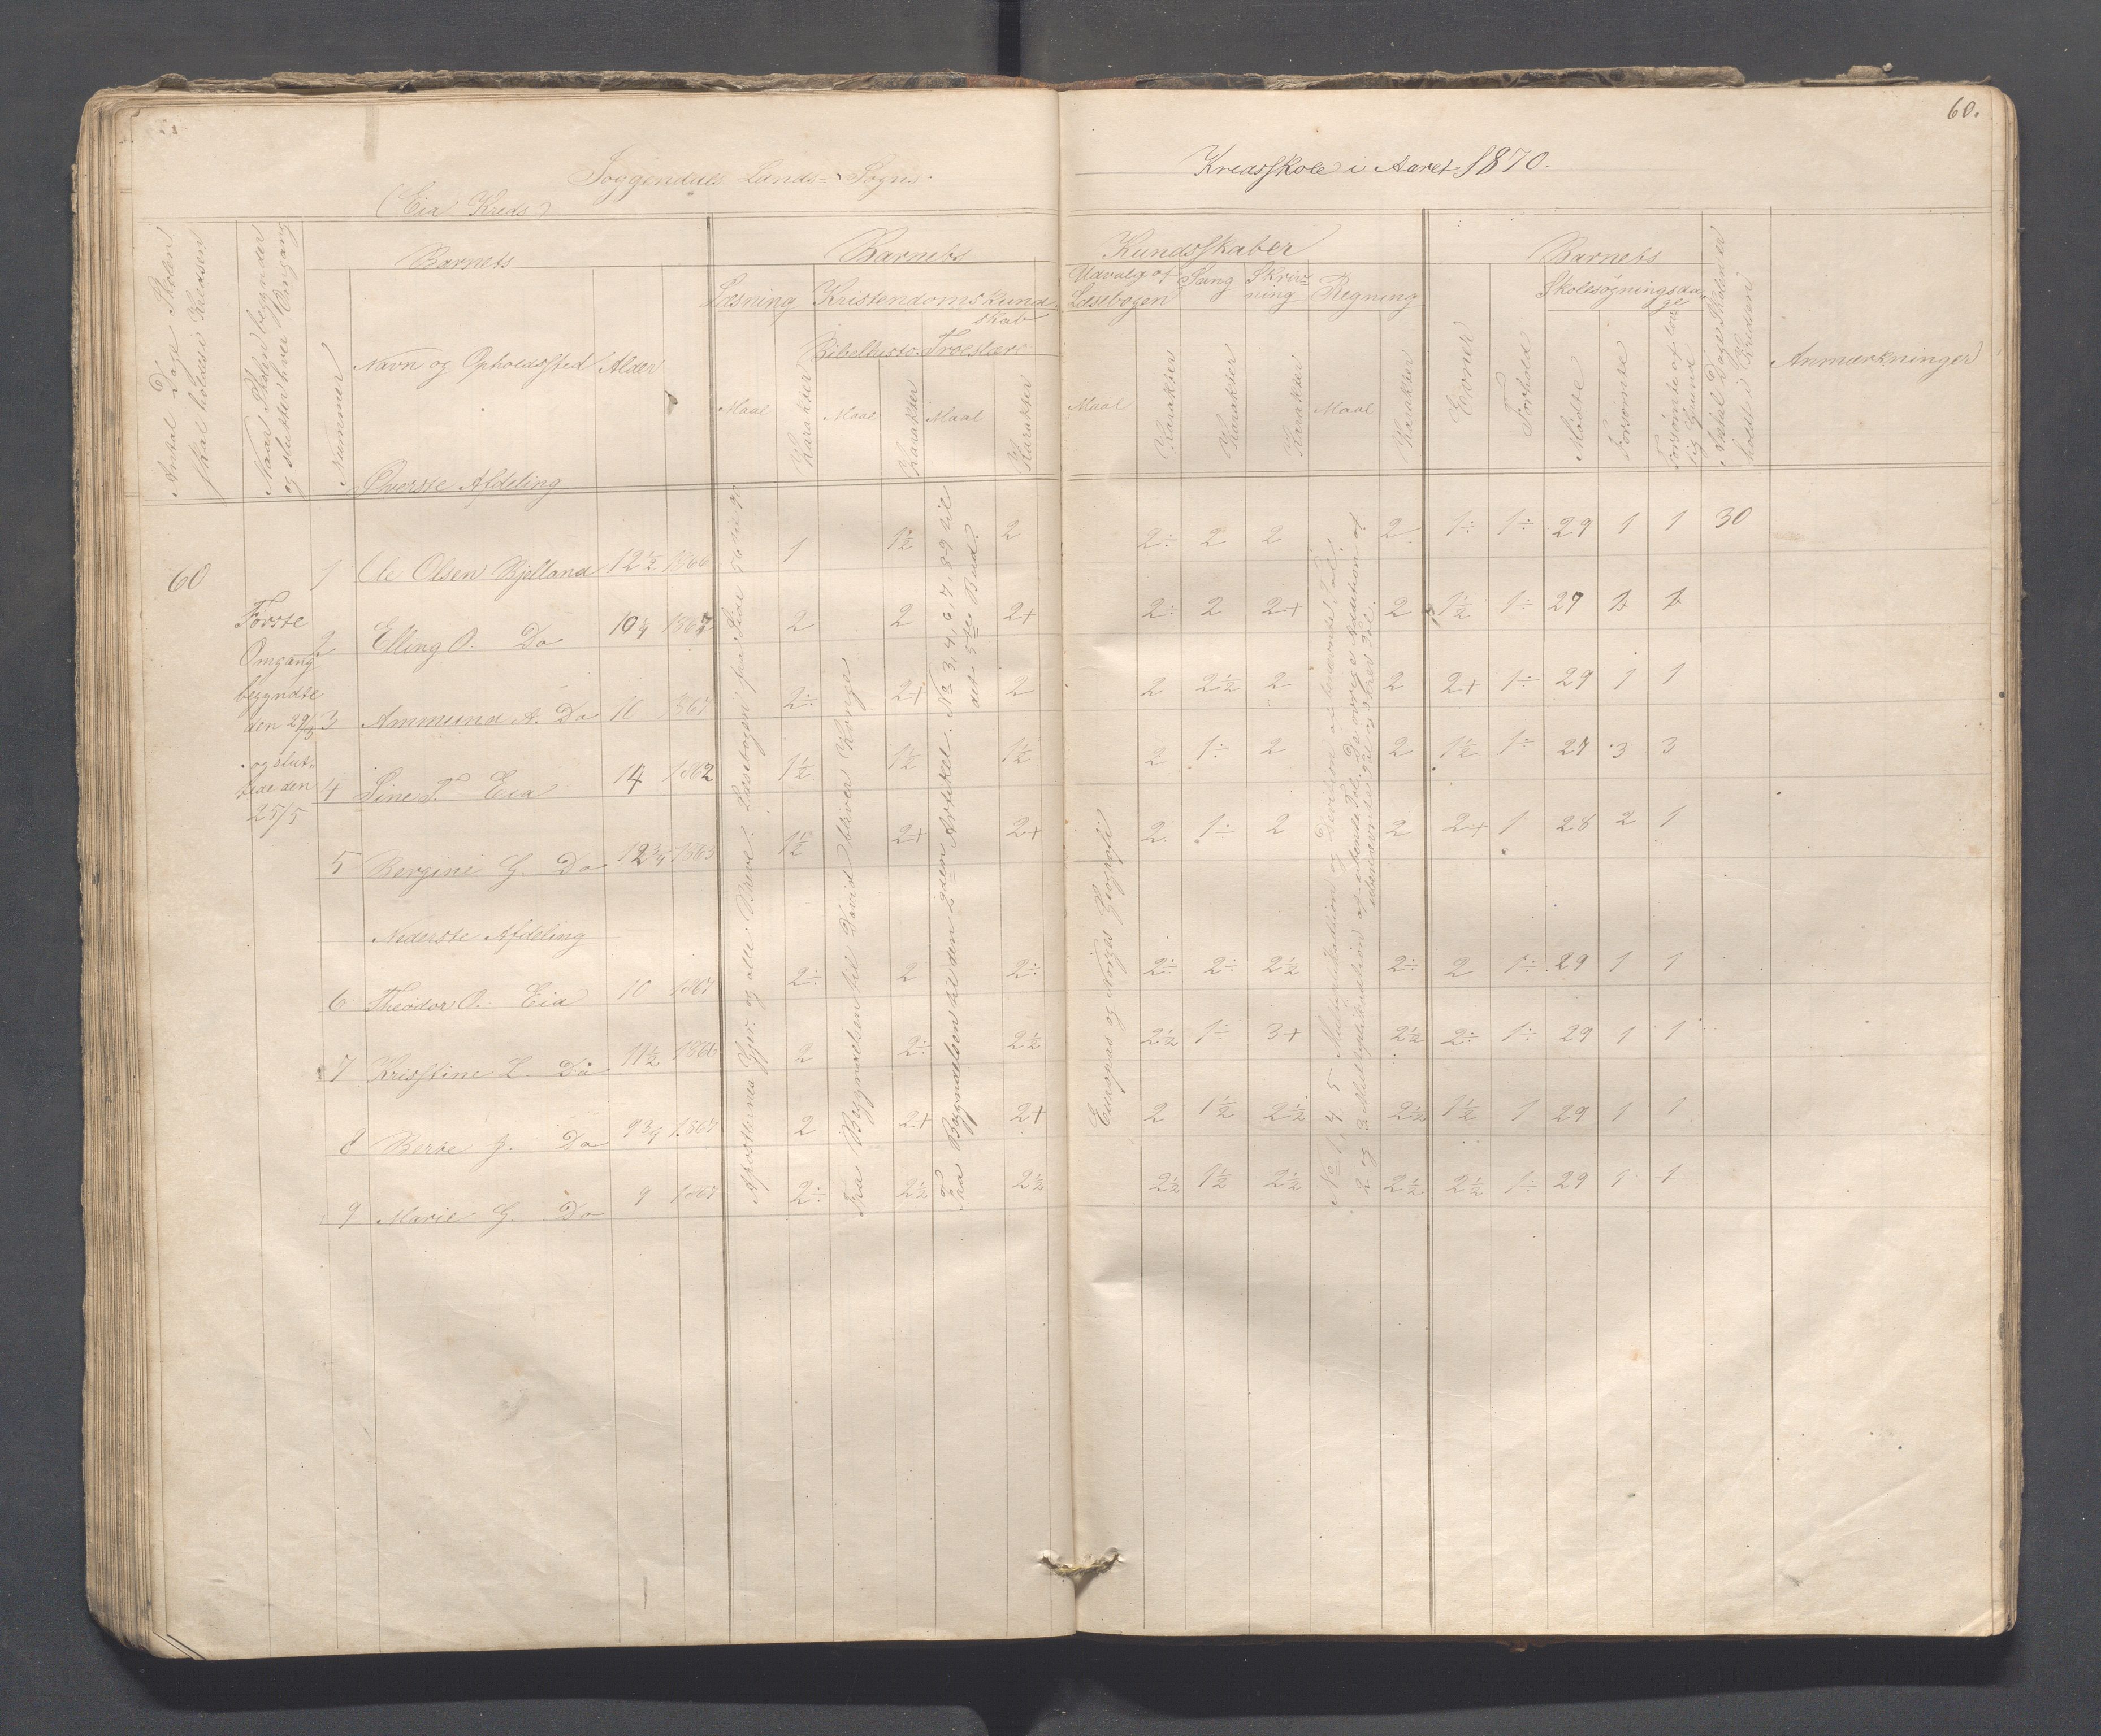 60.
Soggendals Lands-Sogns
Kredsskole i Aaret 1870.
(Eia Kreds)
Antal Dage Skolen
skal holdes i Kredsen
Naar Skolen begynder
og slutter hver Omgang
Nummer
Barnets
Navn og Opholdssted
Alder
Barnets
Kundsskaber
Læsning
Kristendomskund-
skab
Bibelhisto.
Troeslære
Maal
Karakter
Maal
Karakter
Maal
Karakter
Udvalg af
Læsebogen
Sang
Skriv-
ning
Regning
Maal
Karakter
Karakter
Karakter
Maal
Karakter
Barnets
Evner
Forhold
Skolesøgningsda-
ge
Mødte
Forsømte
Forsømte af lov-
lig Grund
Antal Dage Skolen er
holdt i Kredsen
Anmærkninger
Øverste Afdeling
60
Første
Omgang
begyndte
den 29/3
og slut-
tede den
25/5
1 Ole Olsen Bjelland 12½ 1866 1 1½ 2 2÷ 2 2 2 1÷ 1÷ 29 1 1 30
2 Elling O. Do 10¼ 1867 2 2 2+ 2÷ 2 2+ 2 1½ 1÷ 27 1 1
3 Ammund A. Do 10 1867 2÷ 2+ 2 2 2½ 2 2 2+ 1÷ 29 1 1
4 Sine T. Eia 14 1862 1½ 1½ 1½ 2 1÷ 2 2 1½ 1÷ 27 3 3
5 Bergine G. Do 12¾ 1863 1½ 2+ 2+ 2 1÷ 2 2 2+ 1 28 2 1
Nederste Afdeling
6 Theodor O. Eia 10 1867 2÷ 2 2÷ 2÷ 2÷ 2½ 2÷ 2 1÷ 29 1 1
7 Kristine L. Do 11½ 1866 2 2÷ 2½ 2½ 1÷ 3+ 2½ 2÷ 1÷ 29 1 1
8 Berte J. Do 9¾ 1867 2 2+ 2+ 2 1½ 2½ 2½ 1½ 1 29 1 1
9 Marie G. Do 9 1867 2÷ 2½ 2½ 2½ 1½ 2½ 2½ 2½ 1÷ 29 1 1
Apostlenes Gjer. og alle Breve. Læsebogen fra Side
Fra Begyndelsen til David bliver Konge
Fra Begyndelsen til den 2den Artikel. No 3, 4, 6, 7, 8, 9 til
det 5te Bud.
Europas og Norges Geografi
No 1, 4, 5 Multiplikation og Division i benævnte Tal.
2 og 3 Multiplikation